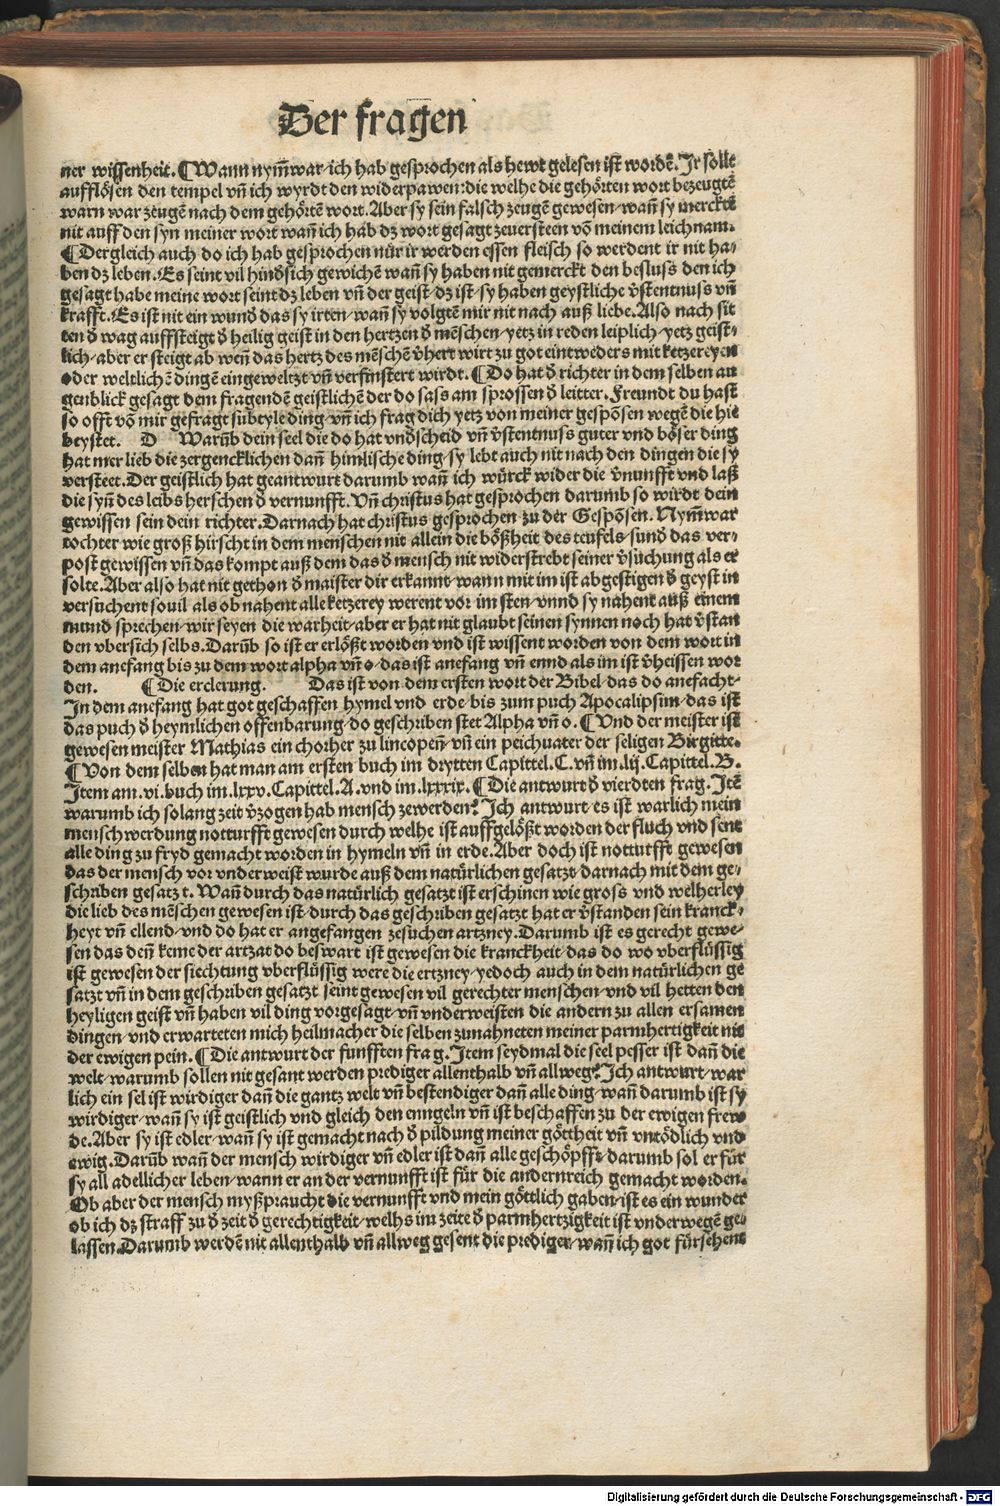 Der fragen
ner wissenheit. ¶ Wann nym̄war⸗ich hab gesprochen als hewt gelesen ist wordē. Ir solle
aufflösen den tempel vn̄ ich wyrdt den widerpawen:die welhe die gehörten wort bezeugtē
warn war zeugē nach dem gehörtē wort. Aber sy sein falsch zeugē gewesen⸗wan̄ sy mercktē
nit auff den syn meiner wort wan̄ ich hab dz wort gesagt zeuersteen vō meinem leichnam.
¶ Dergleich auch do ich hab gesprochen nůr ir werden essen fleisch so werdent ir nit ha⸗
ben dz leben. Es seint vil hind̄sich gewichē wan̄ sy haben nit gemerckt den besluss den ich
gesagt habe meine wort seint dz leben vn̄ der geist⸗dz ist⸗sy haben geystliche v̄stentnuss vn̄
krafft. Es ist nit ein wund̄ das sy irten⸗wan̄ sy volgten mir nit nach auß liebe. Also nach sit
ten d̄ wag auffsteigt d̄ heilig geist in den hertzen d̄ mēschen⸗yetz in reden leiplich⸗yetz geist⸗
lich⸗aber er steigt ab wen̄ das hertz des mēschē v̄hert wirt zu got eintweders mit ketzereyen
oder weltlichē dingē eingeweltzt vn̄ verfinstert wirdt. ¶ Do hat d̄ richter in dem selben au
genblick gesagt dem fragendē geistlichē der do sass am sprossen d̄ leitter. Freundt du hast
so offt vō mir gefragt subtyle ding⸗vn̄ ich frag dich yetz von meiner gespōsen wegē die hie
beystet. D Warūb dein seel die do hat vnd̄scheid vn̄ v̄stentnuss guter vnd böser ding
hat mer lieb die zergencklichen dan̄ himlische ding⸗sy lebt auch nit nach den dingen die sy
versteet. Der geistlich hat geantwurt darumb wan̄ ich würck wider die v̄nunfft vnd laß
die syn̄ des leibs herschen d̄ vernunfft. Vn̄ christus hat gesprochen darumb so wirdt dein
gewissen sein dein richter. Darnach hat christus gesprochen zu der Gespōsen. Nym̄war
tochter wie groß hirscht in dem menschen nit allein die bößheit des teufels⸗sund̄ das ver⸗
post gewissen vn̄ das kompt auß dem das d̄ mensch nit widerstrebt seiner v̄süchung als er
solte. Aber also hat nit gethon d̄ maister dir erkannt⸗wann mit im ist abgestigen d̄ geyst in
versuchent souil als ob nahent alle ketzerey werent vor im sten⸗vnnd sy nahent auß einem
mund sprechen⸗wir seyen die warheit⸗aber er hat nit glaubt seinen synnen noch hat v̄stan
den vbersich selbs. Darūb so ist er erlößt worden vnd ist wissent worden von dem wort in
dem anefang bis zu dem wort alpha vn̄ o⸗das ist anefang vn̄ ennd als im ist v̄heissen wor
den. ¶ Die erclerung. Das ist von dem ersten wort der Bibel⸗das do anefacht⸗
In dem anefang hat got geschaffen hymel vnd erde⸗bis zum puch Apocalipsim⸗das ist
das puch d̄ heymlichen offenbarung⸗do geschriben stet Alpha vn̄ o. ¶ Vnd der meister ist
gewesen meister Mathias ein chorher zu lincopen̄⸗vn̄ ein peichuater der seligen Birgitte.
¶ Von dem selben hat man am ersten buch im drytten Capittel. C. vn̄ im .lij. Capittel. B.
Item am .vi. buch im .lxxv. Capittel. A. vnd im .lxxxix. ¶ Die antwurt d̄ vierdten frag. Itē
warumb ich solang zeit v̄zogen hab mensch zewerden? Ich antwurt⸗es ist warlich mein
menschwerdung notturfft gewesen durch welhe ist auffgelößt worden der fluch vnd sent
alle ding zu fryd gemacht worden in hymeln vn̄ in erde. Aber doch ist notturfft gewesen
das der mensch vor vnderweist wurde auß dem natürlichen gesatzt⸗darnach mit dem ge⸗
schriben gesatzt. Wan̄ durch das natürlich gesatzt ist erschinen wie gross vnd welherley
die lieb des mēschen gewesen ist⸗durch das geschriben gesatzt hat er v̄standen sein kranck⸗
heyt vn̄ ellend⸗vnd do hat er angefangen zesuchen artzney. Darumb ist es gerecht gewe⸗
sen das den̄ keme der artzat do beswart ist gewesen die kranckheit⸗das do wo vberflüssig
ist gewesen der siechtung vberflüssig were die ertzney⸗yedoch auch in dem natürlichen ge
satzt vn̄ in dem geschriben gesatzt seint gewesen vil gerechter menschen⸗vnd vil hetten den
heyligen geist vn̄ haben vil ding vorgesagt⸗vn̄ vnderweisten die andern zu allen ersamen
dingen⸗vnd erwarteten mich heilmacher die selben zunahneten meiner parmhertigkeit nit
der ewigen pein. ¶ Die antwurt der funfften frag. Item seydmal die seel pesser ist dan̄ die
welt⸗warumb sollen nit gesant werden prediger allenthalb vn̄ allweg? Ich antwurt⸗war
lich ein sel ist wirdiger dan̄ die gantz welt vn̄ bestendiger dan̄ alle ding⸗wan̄ darumb ist sy
wirdiger⸗wan̄ sy ist geistlich vnd gleich den enngeln vn̄ ist beschaffen zu der ewigen frew
de. Aber sy ist edler⸗wan̄ sy ist gemacht nach d̄ pildung meiner göttheit vn̄ vntödlich vnd
ewig. Darūb wan̄ der mensch wirdiger vn̄ edler ist dan̄ alle geschöpfft⸗darumb sol er für
sy all adellicher leben⸗wann er an der vernunfft ist für die andern reich gemacht worden.
Ob aber der mensch myßpraucht die vernunfft vnd mein göttlich gaben⸗ist es ein wunder
ob ich dz straff zu d̄ zeit d̄ gerechtigkeit⸗welhs im zeite d̄ parmhertzigkeit ist vnderwegē ge⸗
lassen. Darumb werdē nit allenthalb vn̄ allweg gesent die prediger⸗wan̄ ich got fürsehent
Digitalisierung gefördert durch die Deutsche Forschungsgemeinschaft - DFG